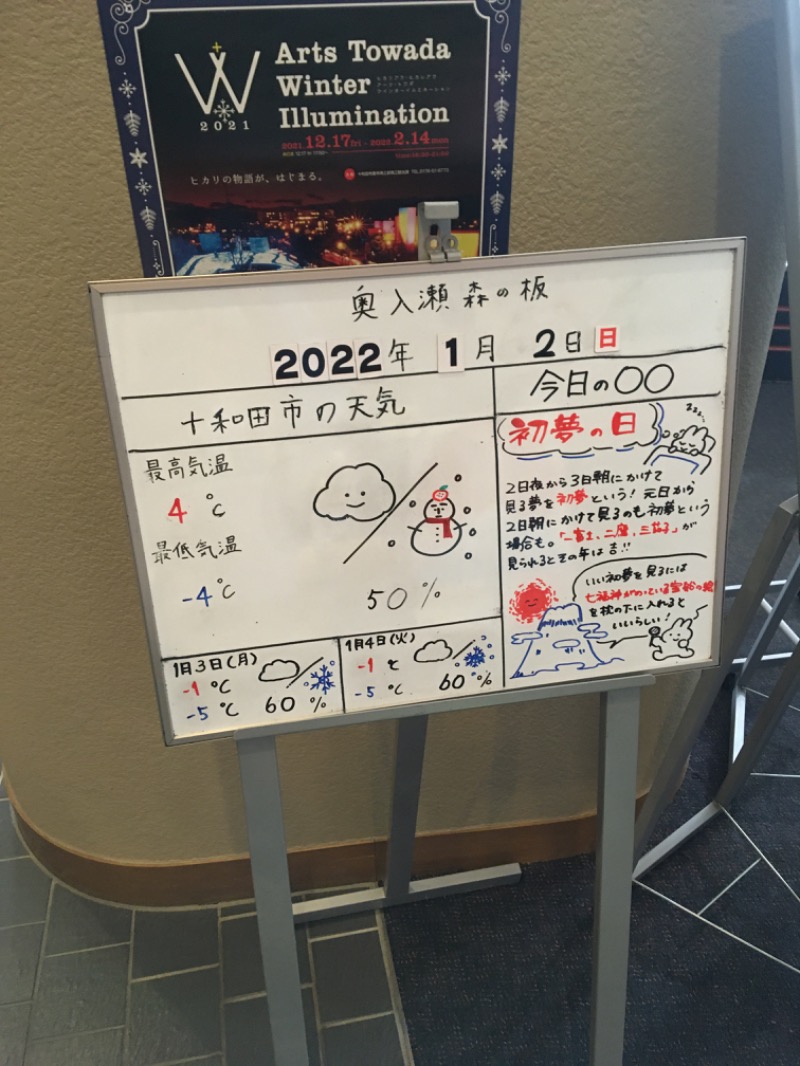 W
2021
Arts Towada
Winter
Illumination
2021 12.17 fri - 2022 2.14 mon
ヒカリの物語が、はじまる。
奥入瀬 森の板
2022年 1月 2日 日
十和田市の天気
最高気温
4℃
最低気温
-4℃
50%
1月3日(月)
-1℃
-5℃ 60%
1月4日(火)
-1℃
-5℃ 60%
今日の〇〇
初夢の日
zzz...
2日夜から3日朝にかけて
見る夢を初夢という！元日から
2日朝にかけて見るのも初夢という
場合も。「一富士、二鷹、三茄子」が
見られるとその年は吉!!
いい初夢を見るには
七福神がのっている宝船の絵
を枕の下に入れると
いいらしい！